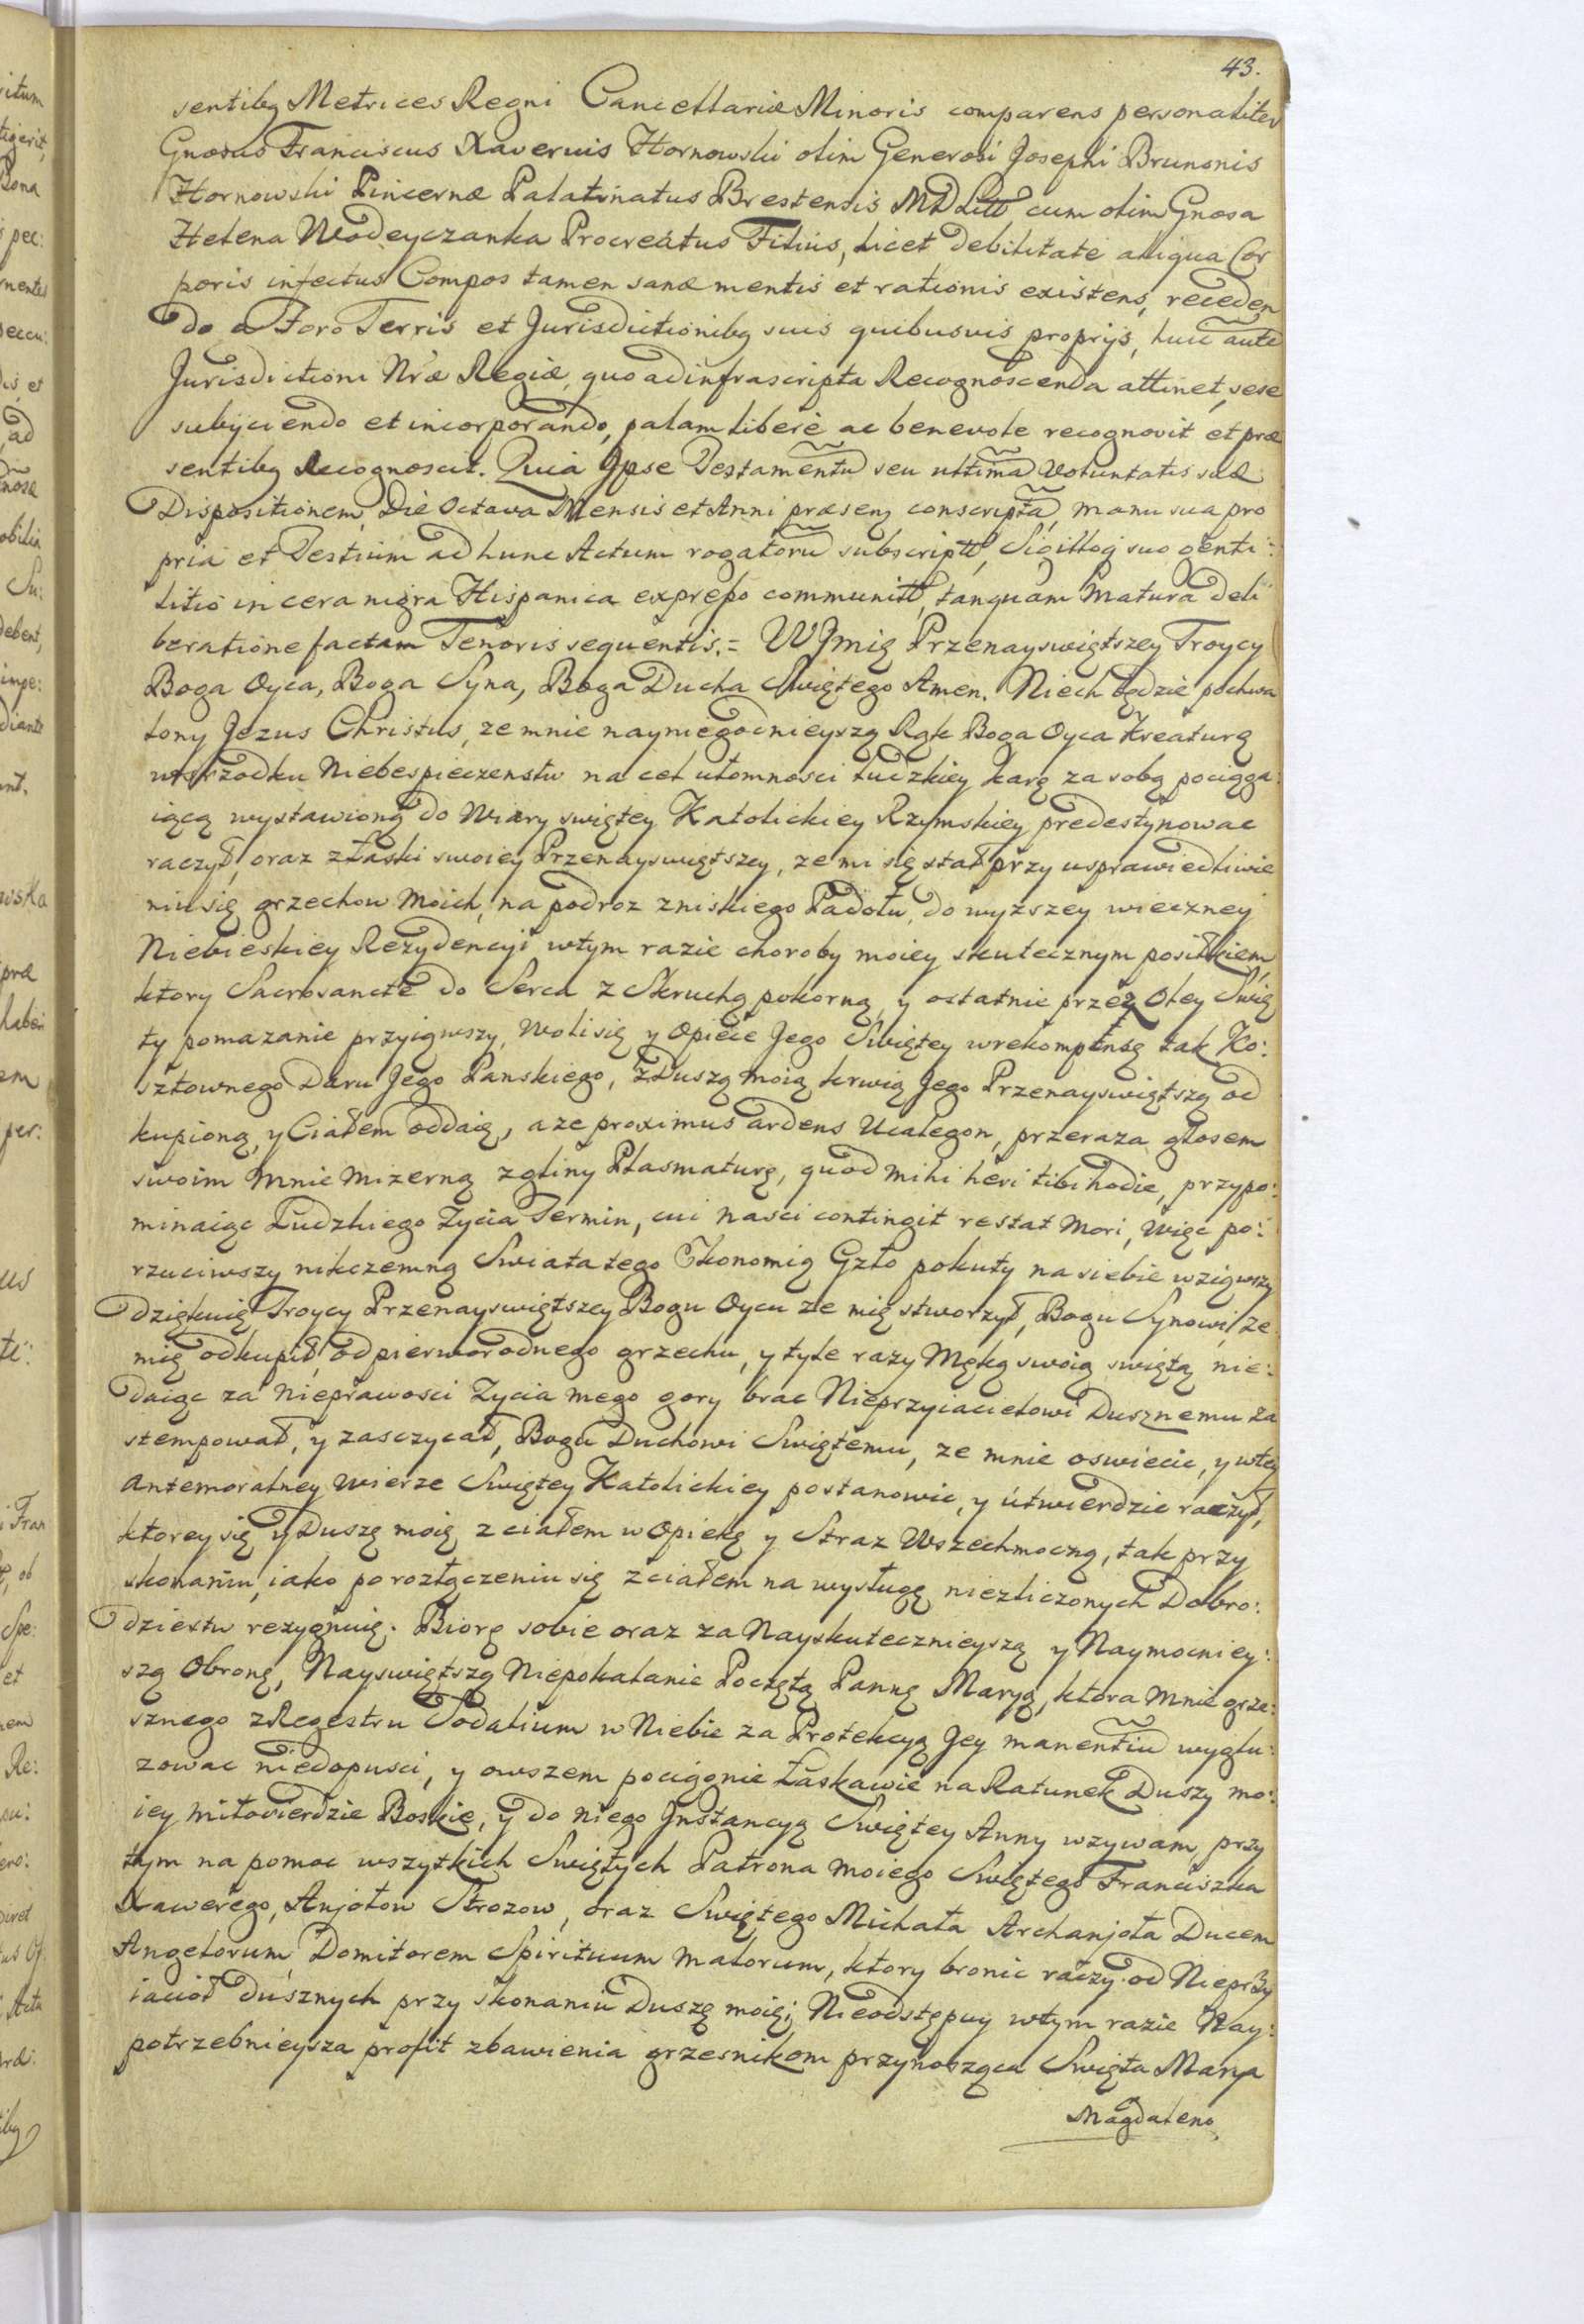 43.
sentibq Metrices Regni Cancellariæ Minoris comparens personaliter
Gnosus Franciscus Xaverius Hornowski olim Generosi Josephi Brunonis
Hornowski Pincernæ Palatinatus Brestensis MD Litt cum olim Gnosa
Helena Wodeyczanka Procreatus Filius, licet debilitate aliqua Cor
poris infectus Compos tamen sanæ mentis et rationis existens, receden
do a Foro Terris et Jurisdictionibq suis quibusvis proprijs, huic aute
Jurisdictioni Nræ Regiæ, quo ad infrascripta Recognoscenda attinet, sese
subijciendo et incorporando, palam libere ac benevole recognovit et præ
sentibq Recognoscit. Quia Ipse Testamentu seu ultima Voluntatis suæ
Dispositionem, Die Octava Mensis et Anni præsenq conscripta, manu sua pro
pria et Testium ad hunc Actum rogatoru subscriptt, Sigilloq suo genti:
litio in cera nigra Hispanica expresso communitt, tanquam Matura deli
beratione factam Tenoris sequentis. = W Jmię Przenayswiętszey Troycy
Boga Oyca, Boga Syna, Boga Ducha Swiętego Amen. Niech będzie pochwa
lony Jezus Christus, ze mnie nayniegodnieyszą Rąk Boga Oyca Kreaturę
wsrzodku Niebespieczenstw na cel ułomnosci ludzkiey karę za sobą pociąga:
iącą wystawioną do Wiary swiętey Katolickiey Rzymskiey predestynowac
raczył, oraz złaski swoiey Przenayswiętszey, ze mi się stał przy usprawiedliwie
niu się grzechow moich, na podroz zniskiego Padołu, do wyzszey wieczney
Niebieskiey Rezydencyi wtym razie choroby moiey skutecznym posiłkiem,
ktory Sacrosancte do Serca z Skruchą pokorną, y ostatnie przez Oley Swię
ty pomazanie przyiąwszy, Woli się y Opiece Jego Swiętey wrekompensę tak Ko:
sztownego Daru Jego Panskiego, z Duszą moią krwią Jego Przenayswiętszą od
kupioną, y Ciałem oddaię, a ze proximus ardens Ucalegon, przeraza głosem
swoim mnie mizerną z gliny Plasmaturę, quod mihi heri tibi hodie, przypo:
minaiąc Ludzkiego Zycia Termin, cui nasci contingit restat Mori, więc po:
rzuciwszy nikczemną Swiata tego Ekonomią Gzło pokuty na siebie wziąwszy
dziękuię Troycy Przenayswiętszey Bogu Oycu ze mię stworzył, Bogu Synowi, ze
mię odkupił, od pierworodnego grzechu, y tyle razy Męką swoią swiętą, nie:
daiąc za nieprawosci Zycia mego gory brac Nieprzyiacielowi Dusznemu za
stempował, y zasczycał, Bogu Duchowi Swiętemu, ze mnie oswiecic, y wtey
antemoralney wierze Swiętey Katolickiey postanowic, y utwierdzic raczył,
ktorey się y Duszę moię z ciałem w Opiekę y Straz Wszechmoczną, tak przy
skonaniu, iako po rozłączeniu się z ciałem na wysługę niezliczonych Dobro:
dziestw rezygnuię. Biorę sobie oraz za Nayskutecznieyszą y Naymocniey:
szą Obronę, Nayswiętszą Niepokalanie Poczętą Pannę Maryą, ktora mnie grze:
sznego z Regestru Sodalium w Niebie za Protekcyą Jey manentiu wyglu:
zowac niedopusci, y owszem pociągnie łaskawie na Ratunek Duszy mo:
iey miłosierdzie Boskie, y do niego Jnstancyą Swiętey Anny wzywam, przy
tym na pomoc wszytkich Swiętych Patrona moiego Swiętego Franciszka
Xawerego, Anjołow Strozow, oraz Swiętego Michała Archanjoła Ducem
Angelorum, Domitorem Spirituum malorum, ktory bronic raczy od Nieprzy
iacioł dusznych przy skonaniu Duszę moię; Nieodstępuy wtym razie Nay:
potrzebnieysza profit zbawienia grzesnikom przynosząca Swięta Marya
Magdaleno